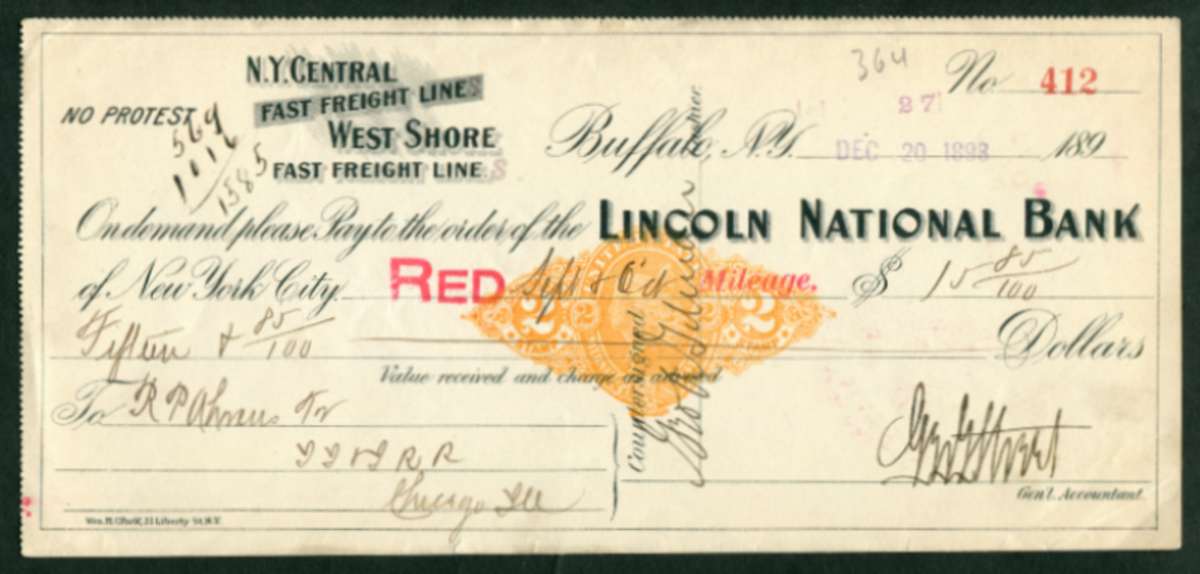 N.Y. CENTRAL
FAST FREIGHT LINES
WEST SHORE
FAST FREIGHT LINES
NO PROTEST
569
1016
1585
364
No 412
27
Buffalo, N.Y. DEC 20 1898 189
On demand please Pay to the order of the LINCOLN NATIONAL BANK
of New York City. RED Sept & Oct Mileage. $ 15 85/100
Fifteen & 85/100 Dollars
Value received and charge as advised
To R P Ahrens Tr
R R
Chicago Ill
Countersigned
Cashier.
Gen'l. Accountant.
Liberty St. N.Y.
2 2 2 2